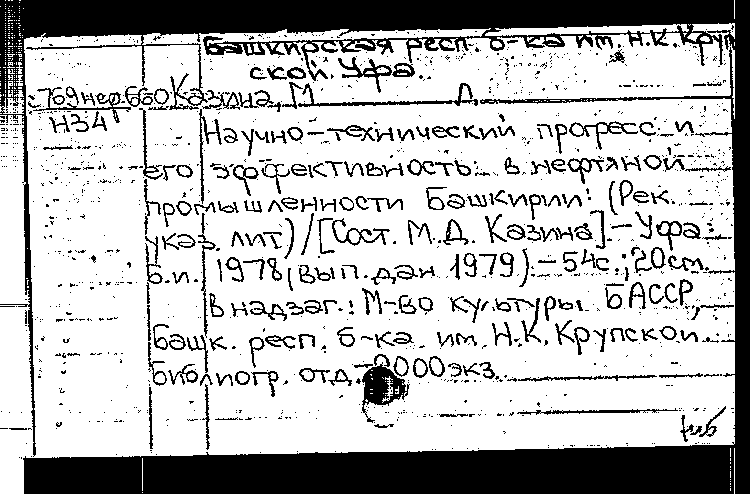 Башкирская респ. б-ка им. Н.К. Круп
ской. Уфа.
769 неф. 660 Казина, М Д.
Н34
Научно-технический прогресс и
его эффективность в нефтяной
промышленности Башкирии: (Рек.
указ. лит) / [Сост. М.Д. Казина]. – Уфа:
б.и., 1978 (вып. дан 1979). – 54с.; 20см.
В надзаг.: М-во культуры БАССР,
Башк. респ. б-ка им. Н.К. Крупской.
Библиогр. отд. 2000 экз.